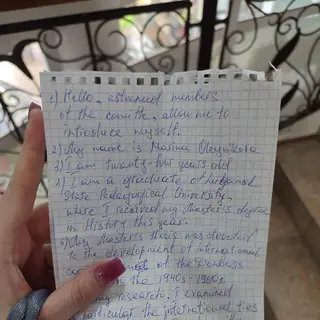 1) Hello, estreamed members
of the comitte, allow me to
introduce myself.
2) My name is Marina Oleynikova
3) I am twanty-two years old
4) I am a graduate of Luhansk
State Pedagogical University,
where I received my Master's degree
in History this years.
5) My Master's thesis was devoted
to the development of international
of the Donbass
in the 1940s - 1960s
my research, I examined
particular the international ties